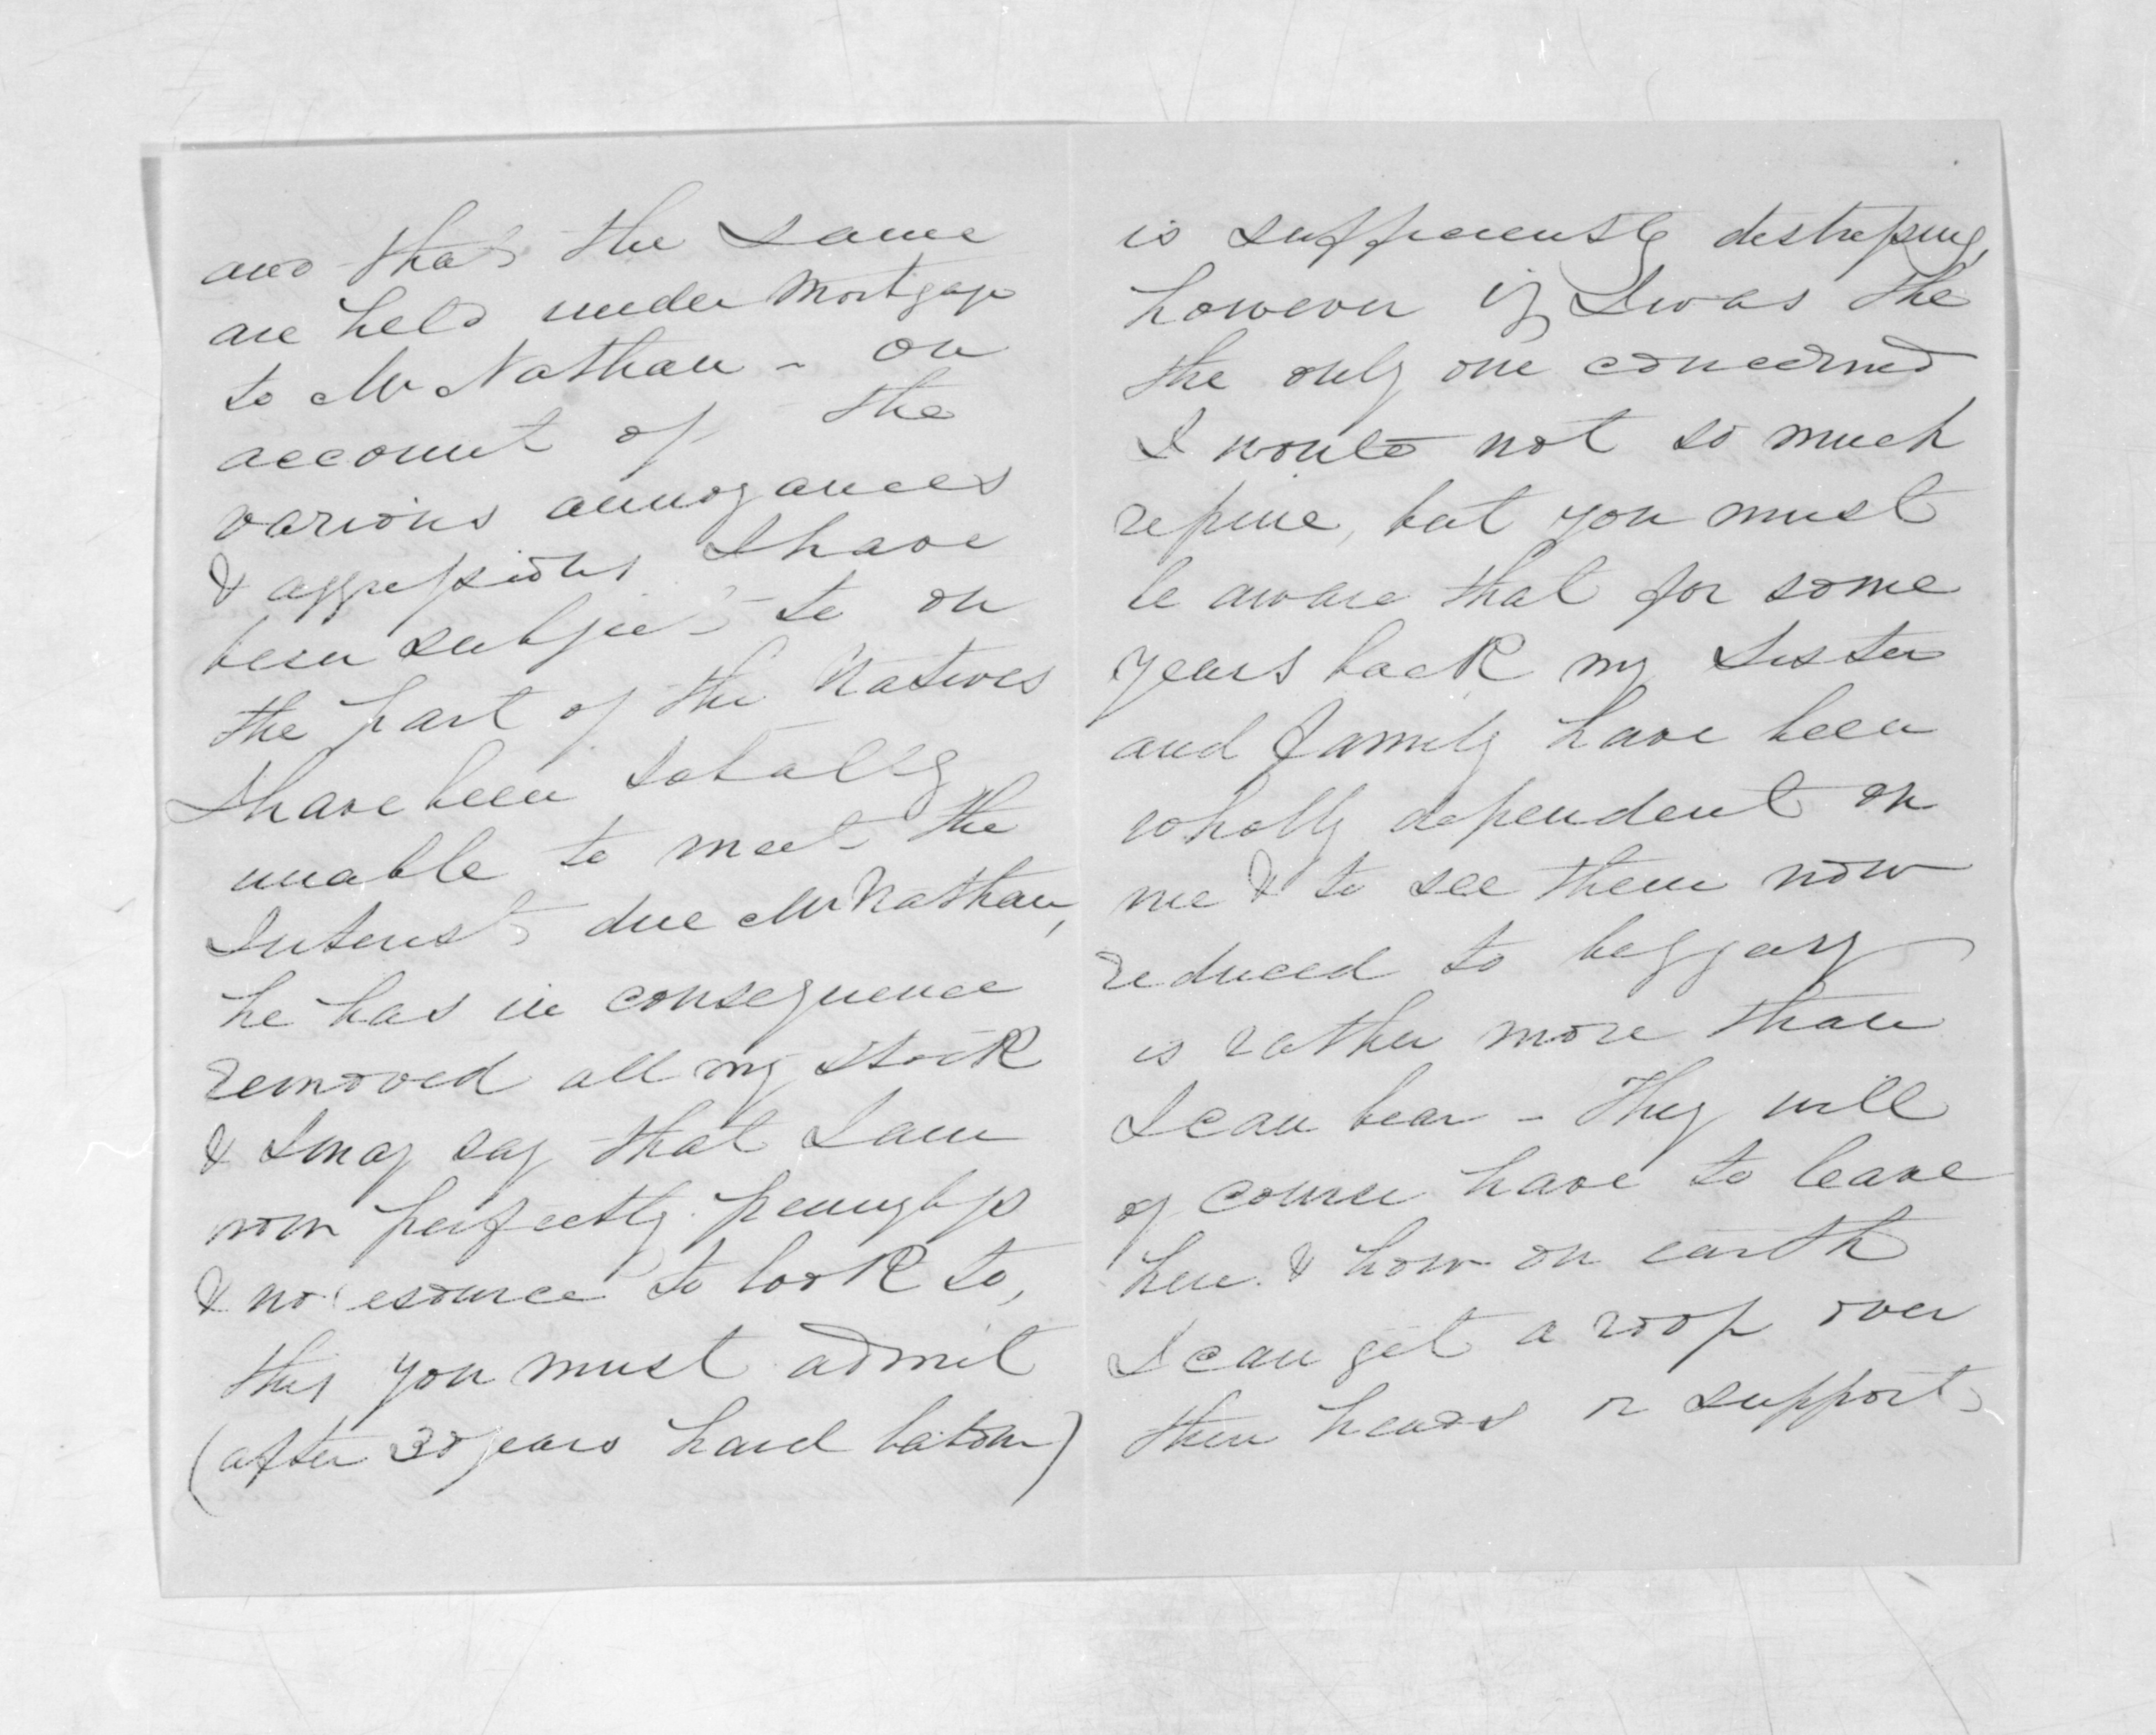 and that the same
are held under Mortgage
to Mr Nathan - on
account of the
various annoyances
& aggressions I have
been subject to on
the part of the Natives
I have been totally
unable to meet the
Interest due Mr Nathan,
he has in consequence
removed all my stock
& I may say that I am
now perfectly pennyless
& no resource to look to,
this you must admit
(after 30 years hard labor)
is sufficiently distressing,
however if I was the
the only one concerned
I would not so much
repine, but you must
be aware that for some
years back my Sister
and family have been
wholly dependent on
me & to see them now
reduced to beggary
is rather more than
I can bear - They will
of course have to leave
here & how on earth
I can get a roof over
their heads or support